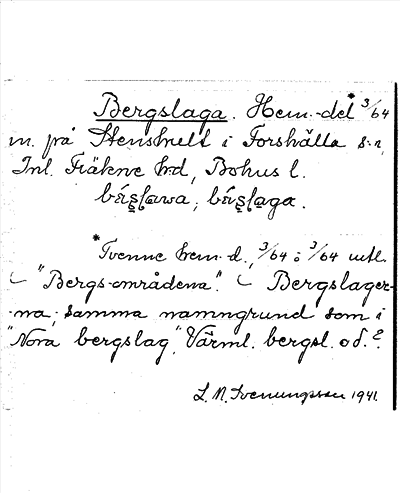 Bergslaga. Hem.-del* 3/64
m. på Stenshult i Forshälla s-n,
Inl. Fräkne h-d, Bohus l.
*Tvenne hem-d., 3/64 o 3/64 mtl.
"Bergs-områdena". Bergslager-
-na, samma namngrund som i
"Nora bergslag", Värml. bergsl. o d.?
L. N. Svenungsson 1941.